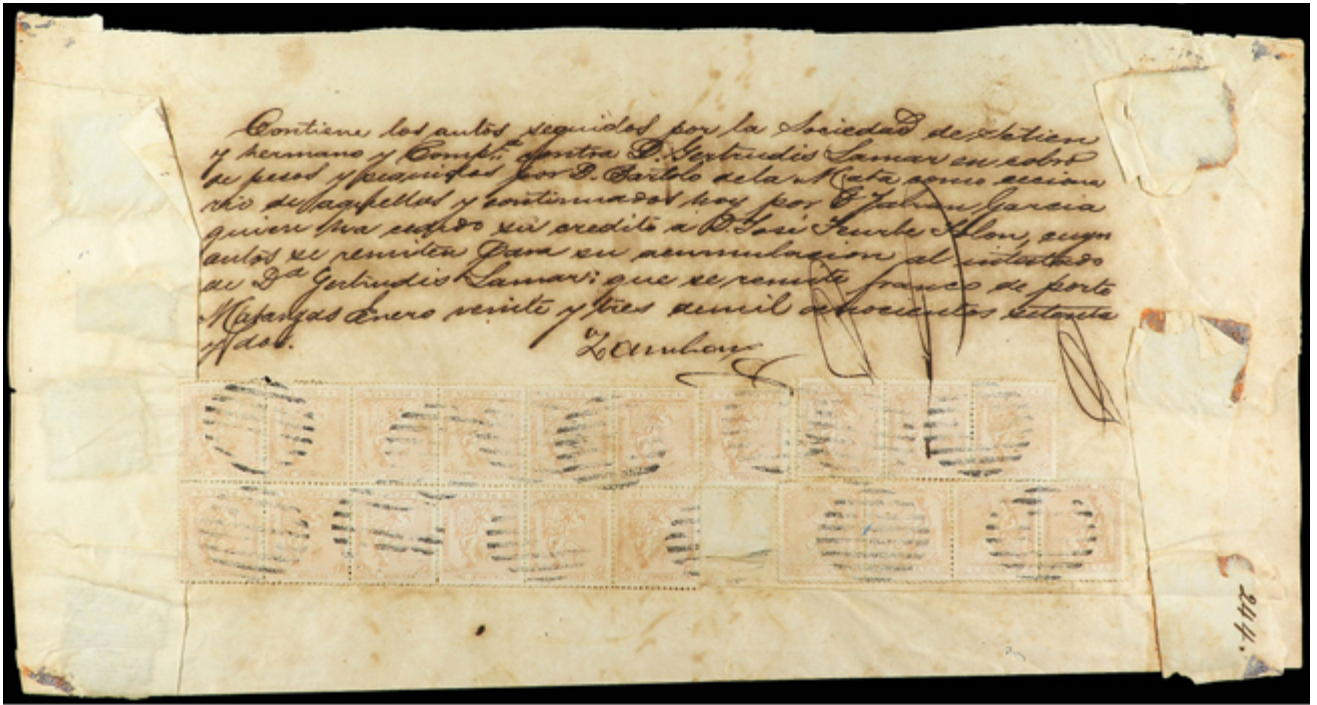 Contiene los autos seguidos por la Sociedad de
y hermano y Comp.ª contra D. Gertrudis Lamar en cobro
de pesos y seguidos por D. Bartolo de la Mata como
de aquellos y continuados hoy por Garcia
quien ha cedido su credito á D. José cuyos
autos se remiten para su acumulacion al intestado
de Dª Gertrudis Lamar: que se remite franco de porte
Matanzas Enero veinte y tres de mil ochocientos setenta
y dos.
244.